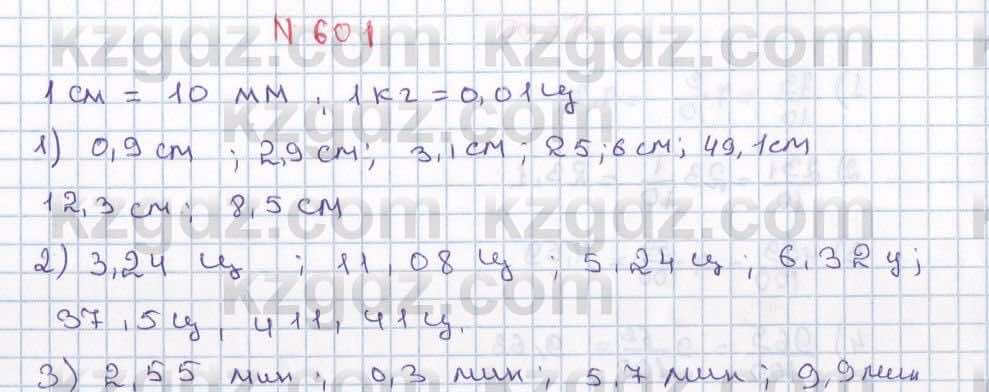 N 601
1 см = 10 мм ; 1 кг = 0,01 ц
1) 0,9 см ; 2,9 см; 3,1 см; 25,6 см; 49,1 см
12,3 см; 8,5 см
2) 3,24 ц ; 11,08 ц ; 5,24 ц ; 6,32 ц ;
37,5 ц, 411,41 ц.
3) 2,55 мин ; 0,3 мин; 5,7 мин; 9,9 мин
kzgdz.com kzgdz.com
kzgdz.com kzgdz.com
kzgdz.com kzgdz.com
kzgdz.com kzgdz.com